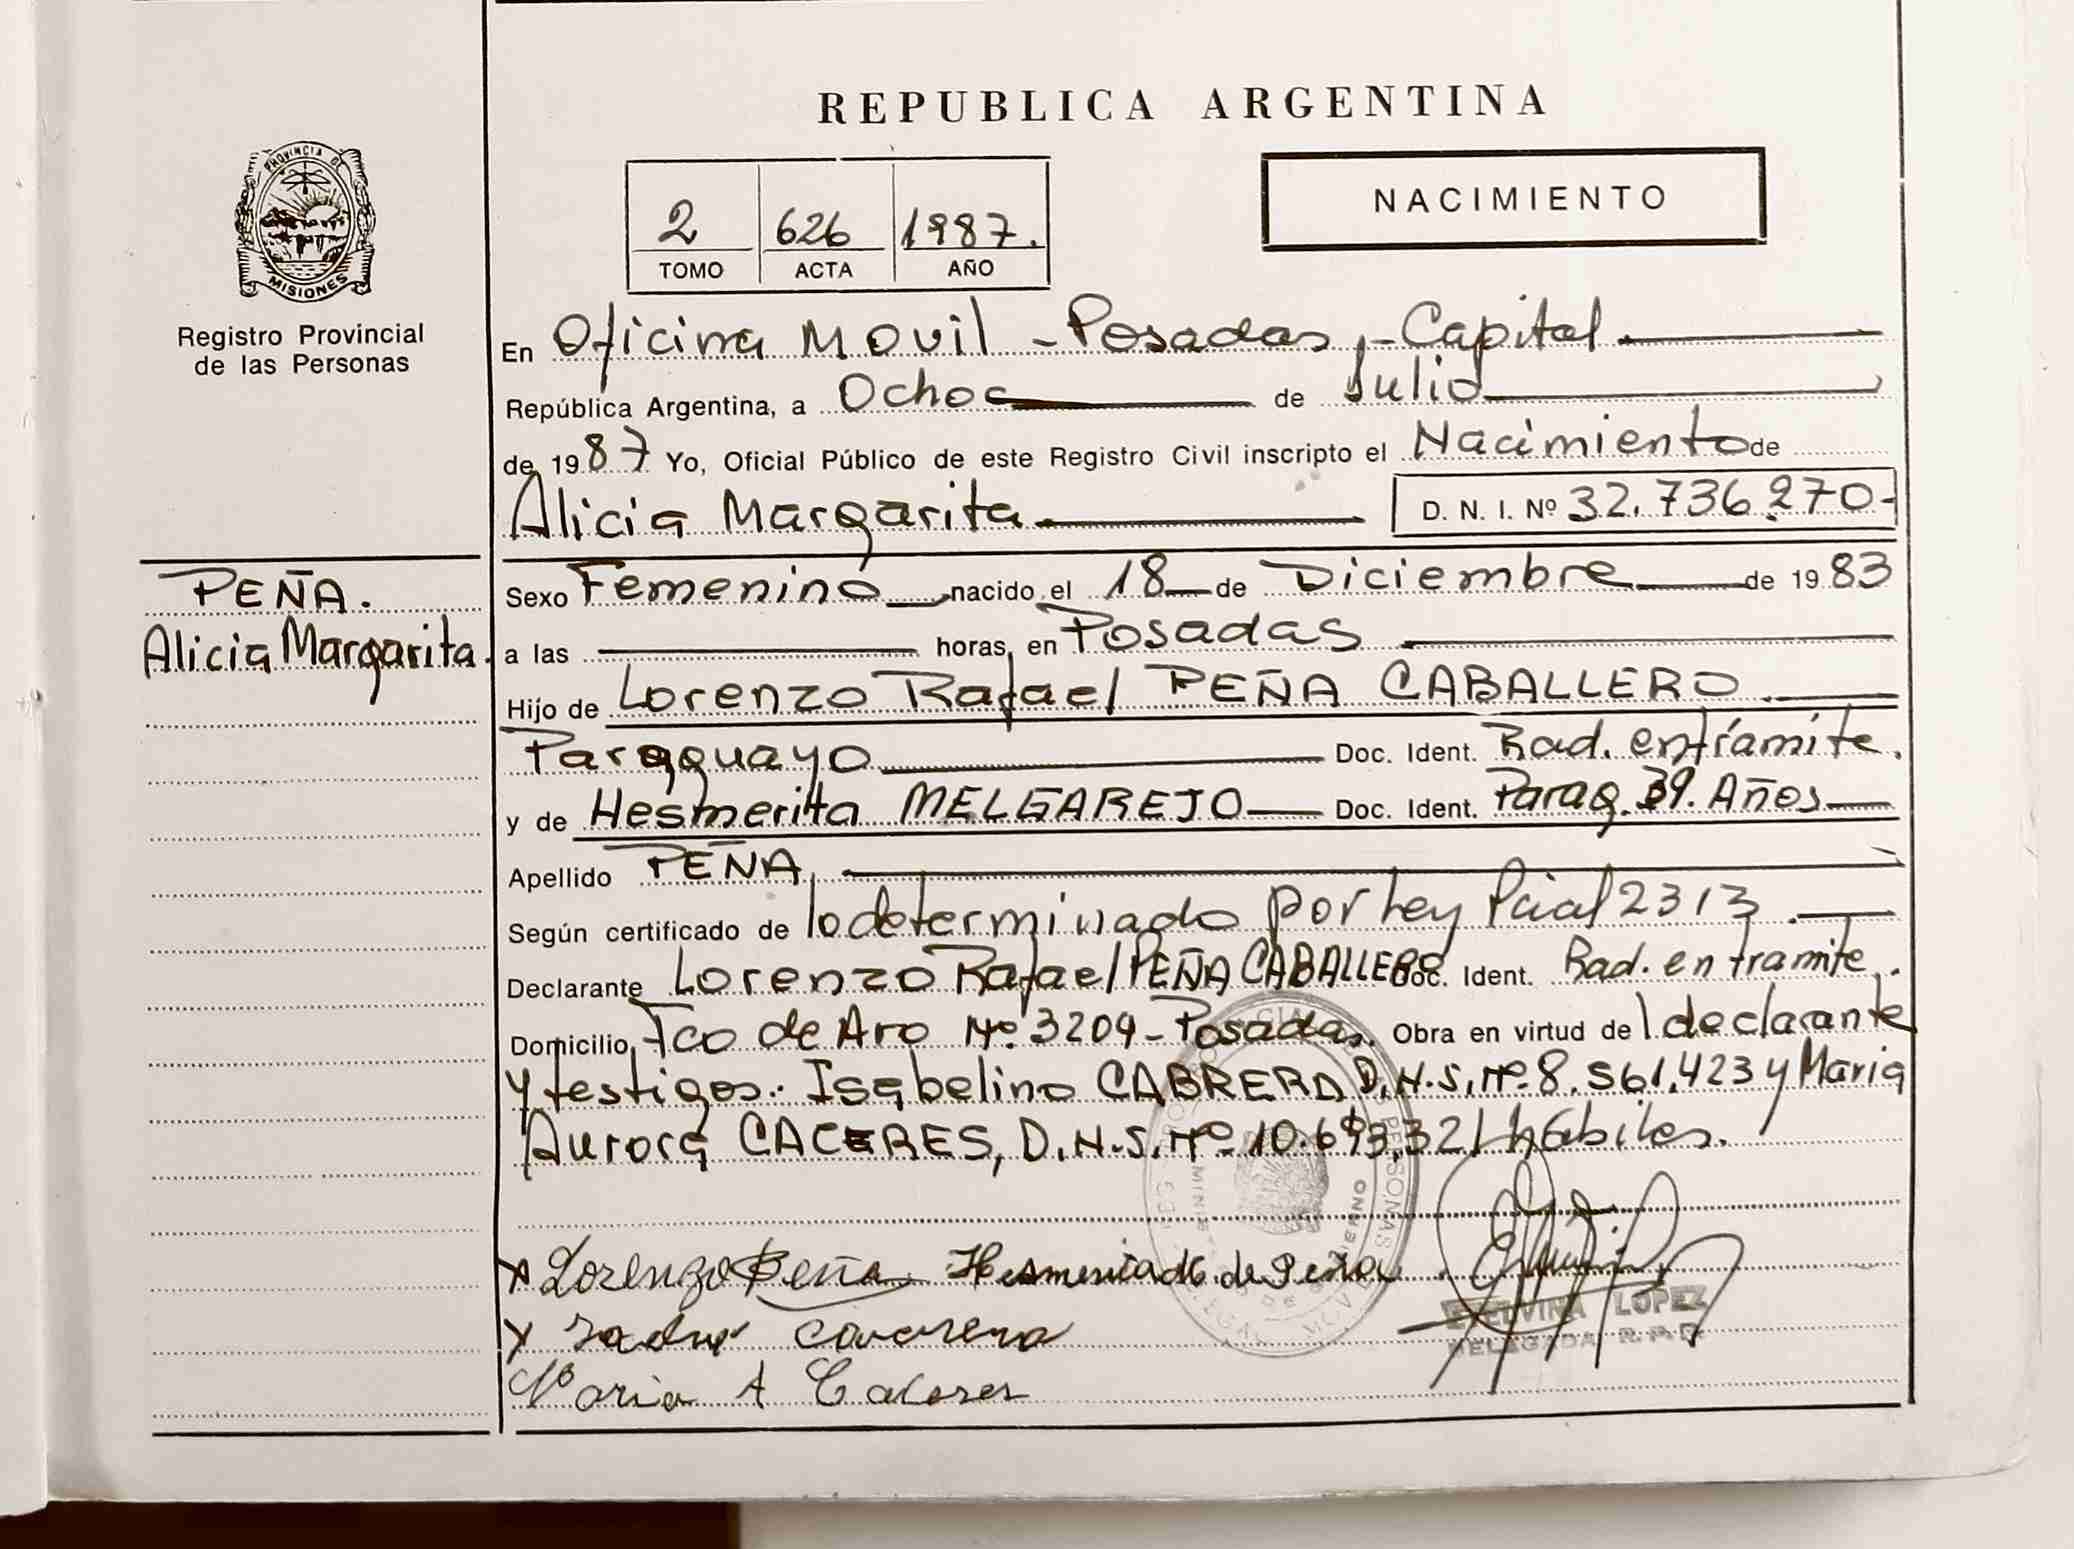 REPUBLICA ARGENTINA
PROVINCIA DE
MISIONES
Registro Provincial
de las Personas
2 626 1987.
TOMO ACTA AÑO
NACIMIENTO
En Oficina Movil - Posadas, - Capital
República Argentina, a Ocho de Julio
de 1987 Yo, Oficial Público de este Registro Civil inscripto el Nacimiento de
Alicia Margarita D. N. I. Nº 32.736.270-
PEÑA.
Alicia Margarita.
Sexo Femenino nacido el 18 de Diciembre de 1983
a las horas, en Posadas
Hijo de Lorenzo Rafael PEÑA CABALLERO
Paraguayo Doc. Ident. Rad. en trámite.
y de Hesmerita MELGAREJO Doc. Ident. Parag. 39. Años
Apellido PEÑA
Según certificado de lo determinado por Ley Pcial 2313.
Declarante Lorenzo Rafael PEÑA CABALLERO Doc. Ident. Rad. en tramite.
Domicilio Fco de Aro Nº 3209 - Posadas. Obra en virtud de l declarante
y testigos: Isabelino CABRERA D.N.I. Nº 8.561.423 y Maria
Aurora CACERES, D.N.I. Nº 10.693.321 hábiles.
x Lorenzo Peña de Peña
x
Maria A Caceres
LOPEZ
DELEGADA R.P.P.